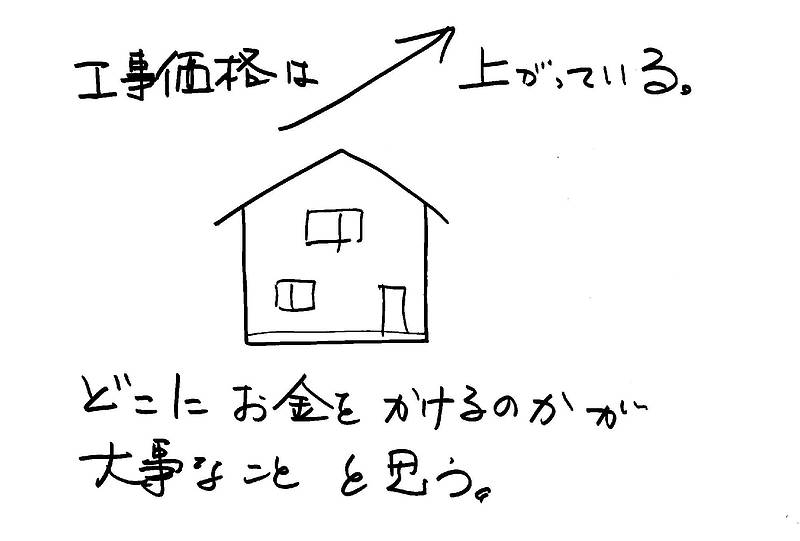 工事価格は 上がっている。
どこにお金をかけるのかが
大事なことと思う。